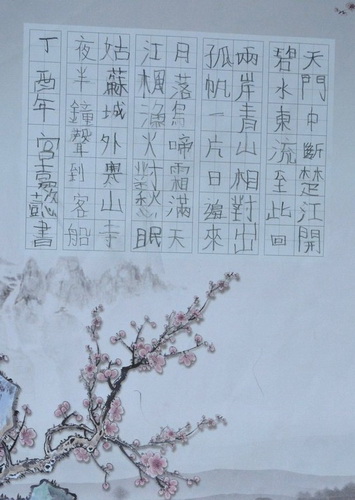 天門中斷楚江開
碧水東流至此回
兩岸青山相對出
孤帆一片日邊來
月落烏啼霜滿天
江楓漁火對愁眠
姑蘇城外寒山寺
夜半鐘聲到客船
丁酉年宮懿書